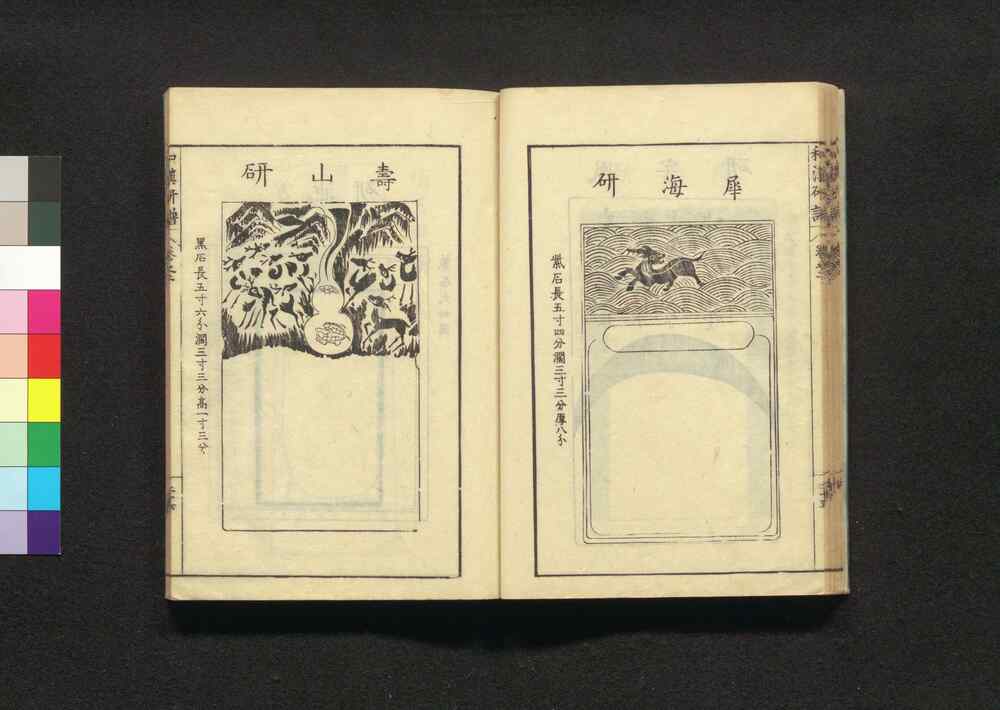 犀海研
紫石長五寸四分濶三寸三分厚八分
壽山研
黒石長五寸六分濶三寸三分高一寸三分
和漢研譜